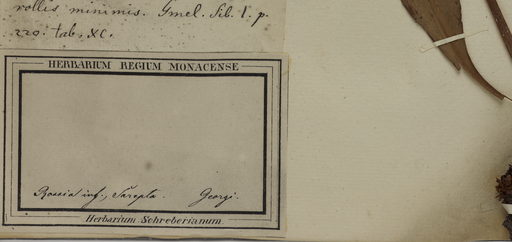 rollis minimis. Gmel. Sib. 1. p.
220. tab. XC.
HERBARIUM REGIUM MONACENSE
Rossia inf., Sarepta. Georgi.
Herbarium Schreberianum